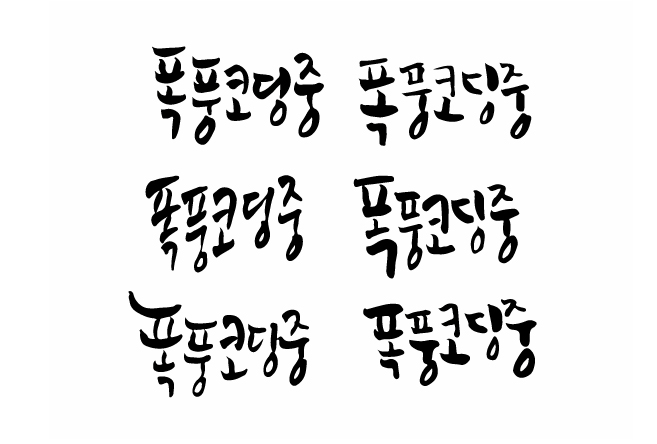 폭풍코딩중 폭풍코딩중
폭풍코딩중 폭풍코딩중
폭풍코딩중 폭풍코딩중